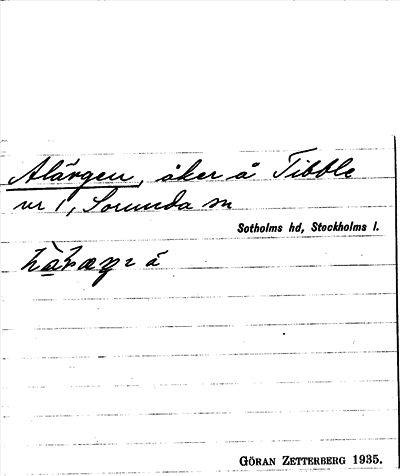 Alängen, åker å Tibble
nr 1, Sorunda sn
Sotholms hd, Stockholms l.
GÖRAN ZETTERBERG 1935.